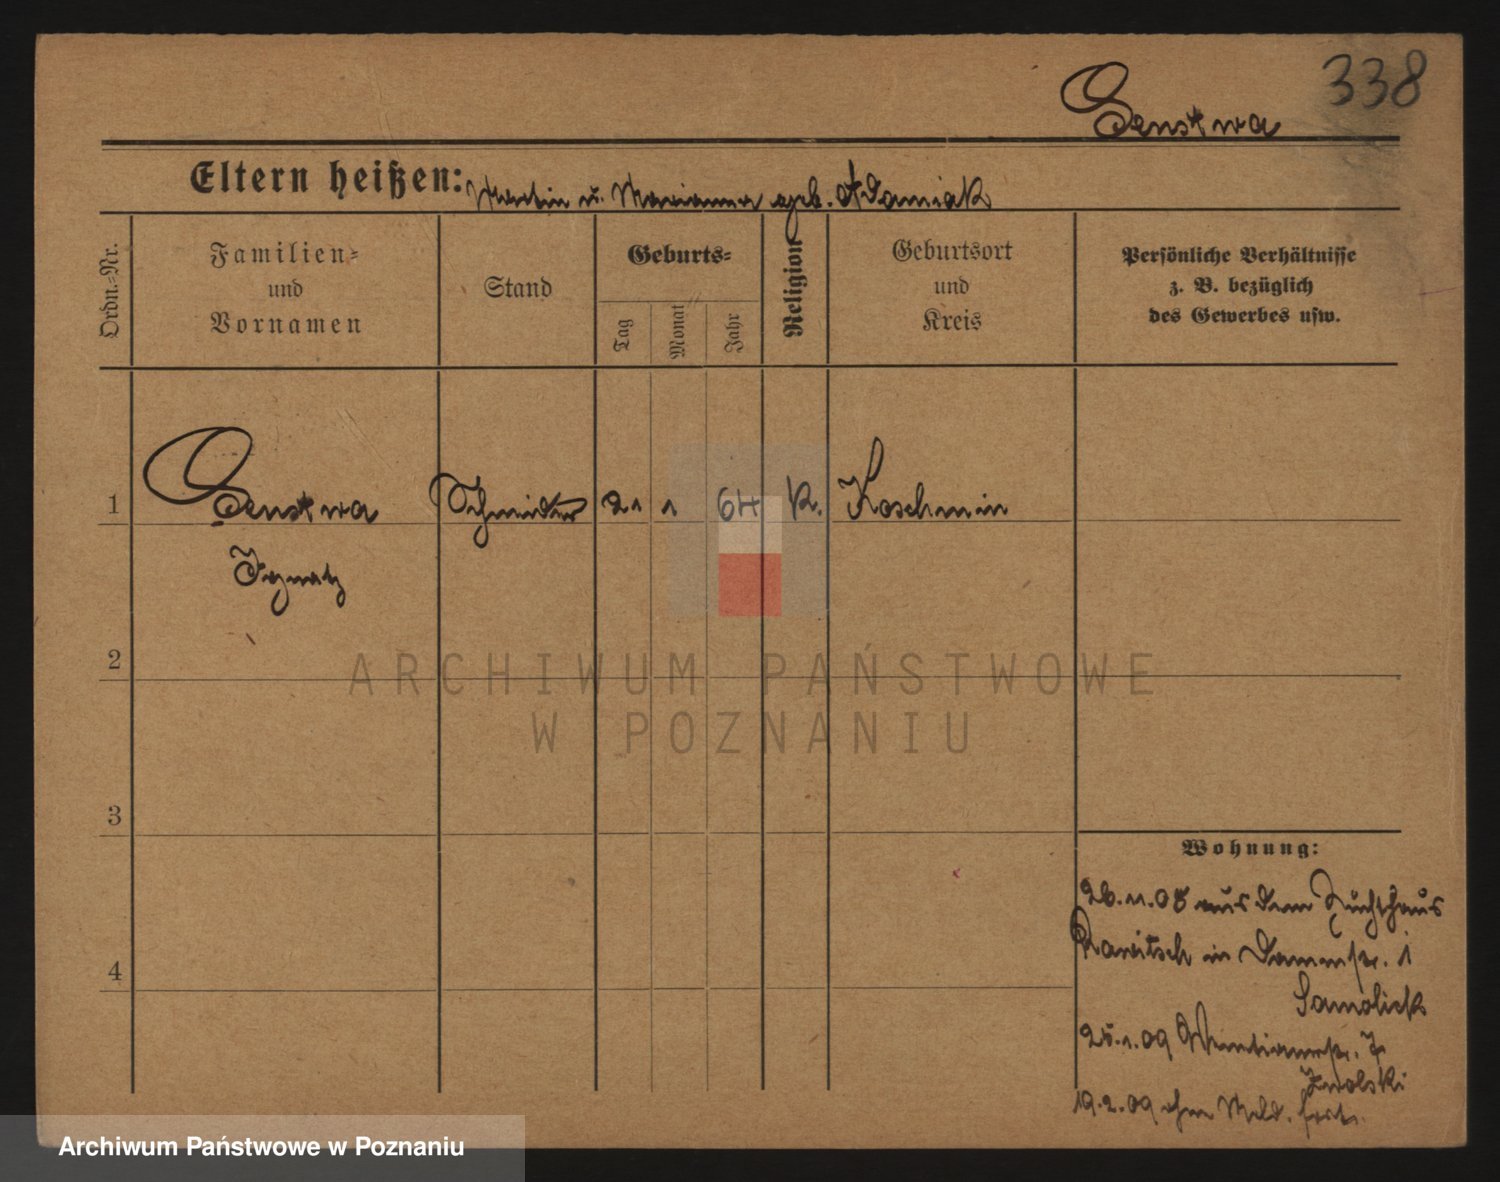 338
Genstwa
Eltern heißen: Martin u. Marianna geb. Adamiak
Ordn.-Nr.
Familien- und Vornamen
Stand
Geburts-
Tag
Monat
Jahr
Religion
Geburtsort und Kreis
Persönliche Verhältnisse
z. B. bezüglich
des Gewerbes usw.
1 Genstwa Schneider 21 1 64 K. Koschmin
Ignatz
2
3
4
Wohnung:
26.11.08 aus dem Zuchthaus
Rawitsch in Dammstr. 1
25.1.09
19.2.09 ohne Meld. fort.
ARCHIWUM PAŃSTWOWE
W POZNANIU
Archiwum Państwowe w Poznaniu